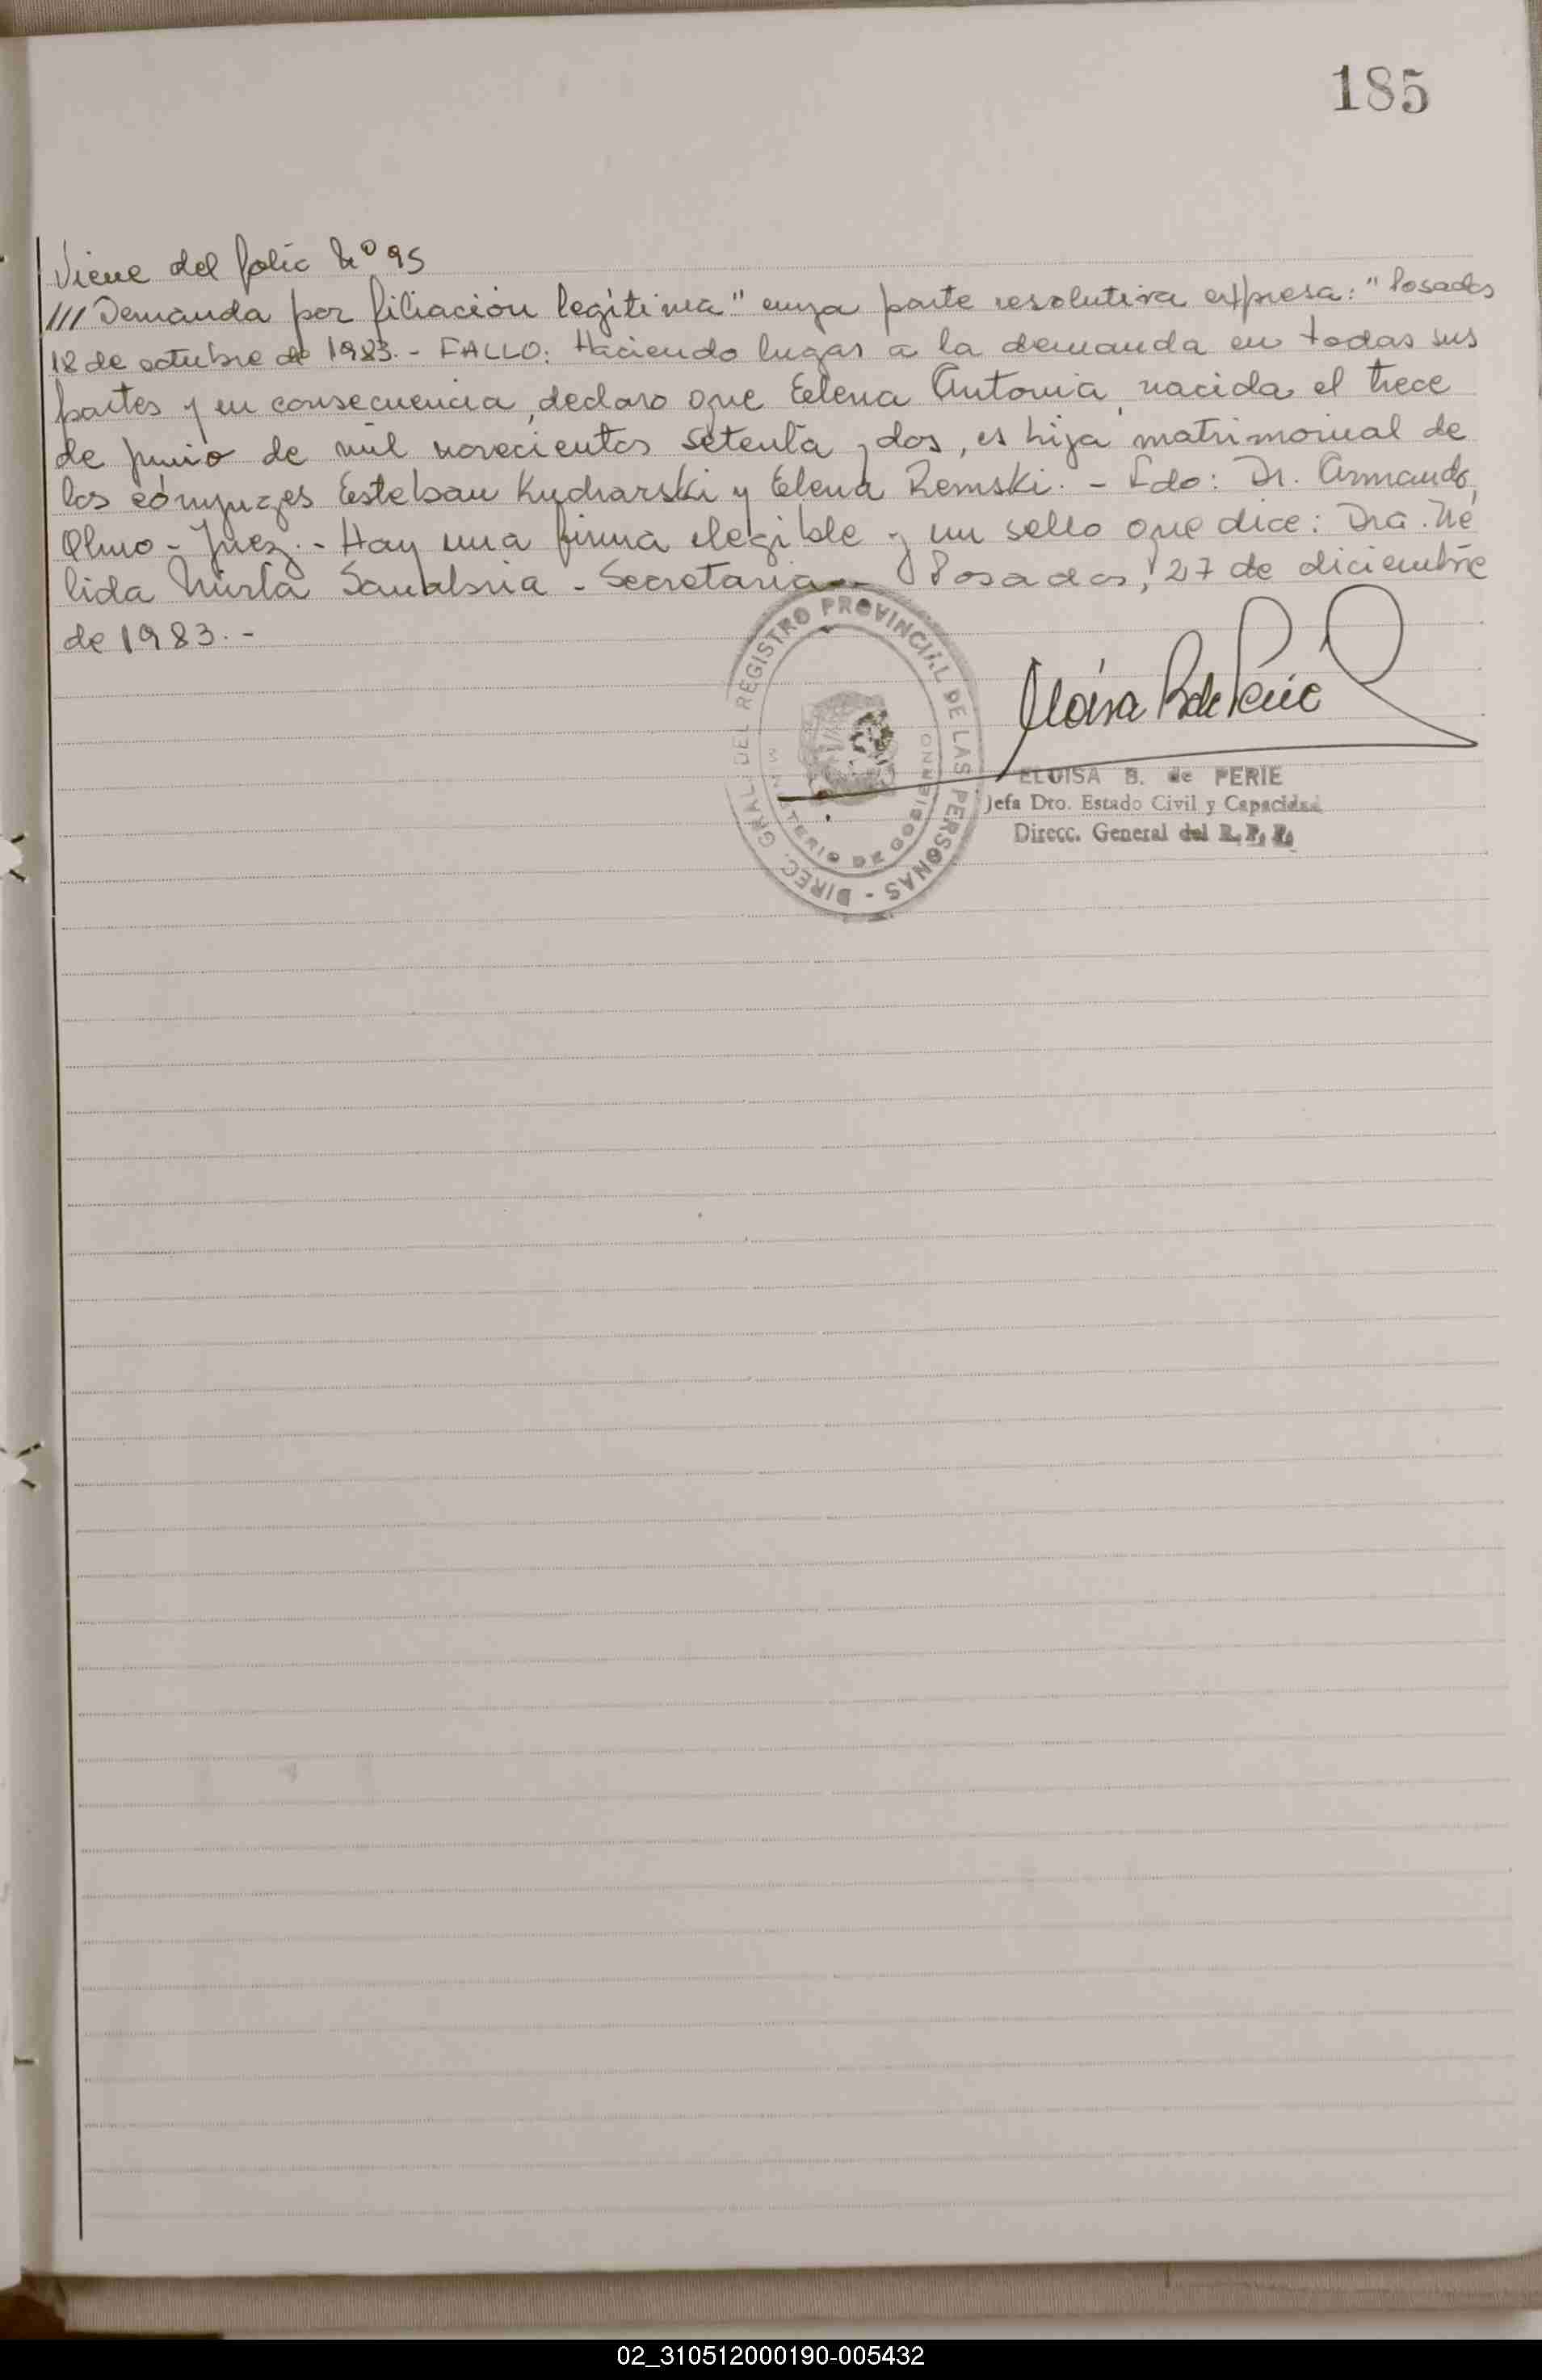 185
Viene del folio Nº 95
/// Demanda por filiación legítima" cuya parte resolutiva expresa: "Posadas
18 de octubre de 1983.- FALLO: Haciendo lugar a la demanda en todas sus
partes y en consecuencia, declaro que Elena Antonia, nacida el trece
de junio de mil novecientos setenta y dos, es hija matrimonial de
los cónyuges Esteban Kucharski y Elena Remski. - Fdo: Dr. Armando
Olmo - Juez. - Hay una firma ilegible y un sello que dice: Dra. Né
lida Mirta Sanabria - Secretaria - Posadas, 27 de diciembre
de 1983. -
DIREC. GRAL. DEL REGISTRO PROVINCIAL DE LAS PERSONAS -
MINISTERIO DE GOBIERNO
Eloisa B de Perié
ELOISA B. de PERIE
Jefa Dto. Estado Civil y Capacidad
Direcc. General del R. P. P.
02_310512000190-005432